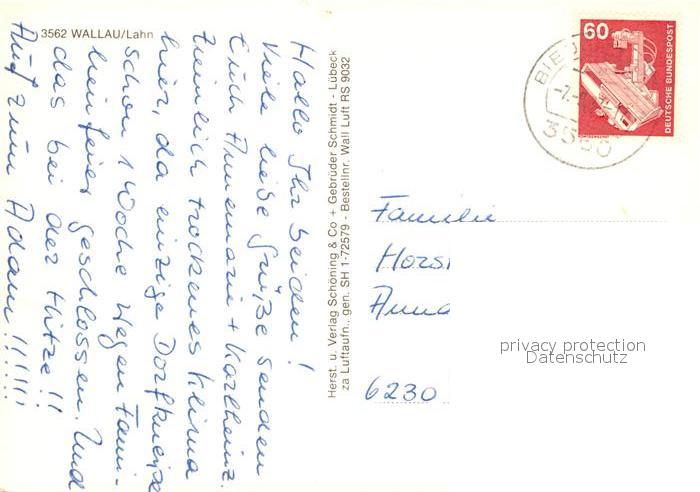 3562 WALLAU/Lahn
Hallo Ihr beiden!
Viele liebe Grüße senden
Euch Annemarie + Karlheinz.
Ziemlich trockenes Klima
hier, da einzige Dorfkneipe
schon 1 Woche wegen Fami-
lienfeier geschlossen. Und
das bei der Hitze!!
Auf zum Adam!!!!!!
Herst. u. Verlag Schöning & Co + Gebrüder Schmidt - Lübeck
za Luftaufn., gen. SH 1-72579 - Bestellnr. Wall Luft RS 9032
60
DEUTSCHE BUNDESPOST
3560
Familie
Horst
Anna
6230
privacy protection
Datenschutz